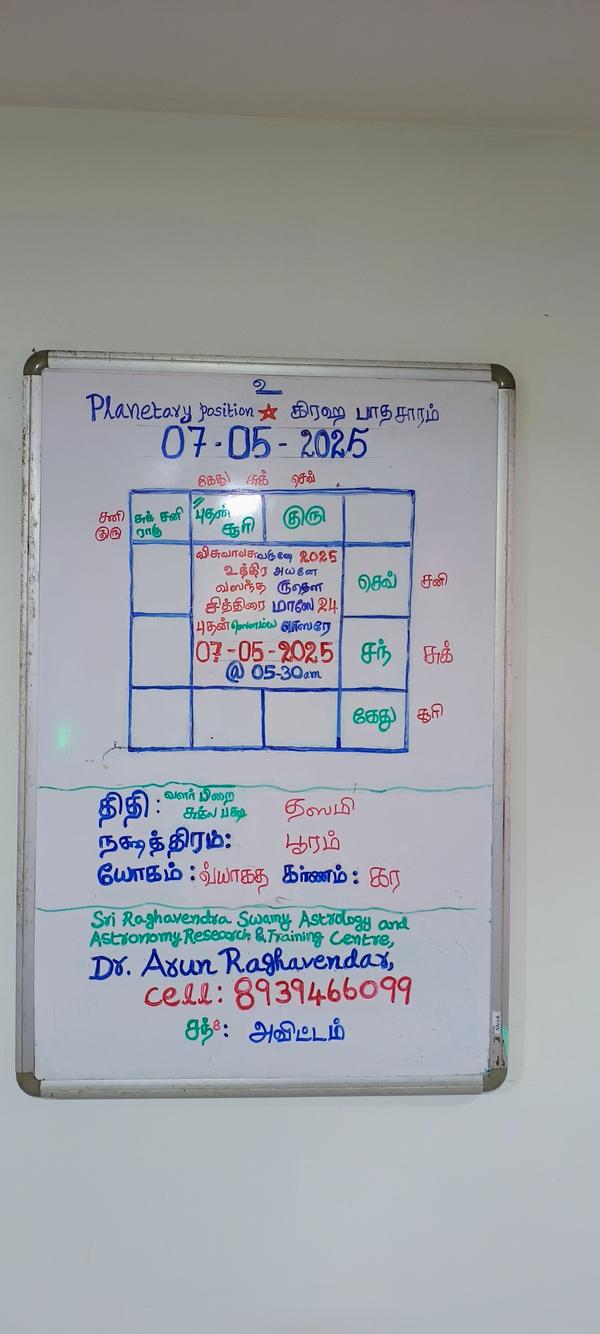 உ
Planetary position கிரஹ பாதசாரம்
07-05-2025
கேது சுக் செவ்
சனி குரு
சுக் சனி ராகு
புதன் சூரி
குரு
விசுவாவசு வருஷே 2025
உத்திர அயனே
வஸந்த ருதௌ
சித்திரை மாஸே 24
புதன் ஸௌம்ய வாஸரே
07-05-2025
@ 05-30am
செவ் சனி
சந் சுக்
கேது சூரி
திதி: வளர் பிறை சுக்ல பக்ஷ தஸமி
நக்ஷத்திரம்: பூரம்
யோகம்: வ்யாகத கர்ணம்: கர
Sri Raghavendra Swamy Astrology and
Astronomy Research & Training Centre,
Dr. Arun Raghavendar,
cell: 8939466099
சந்8: அவிட்டம்